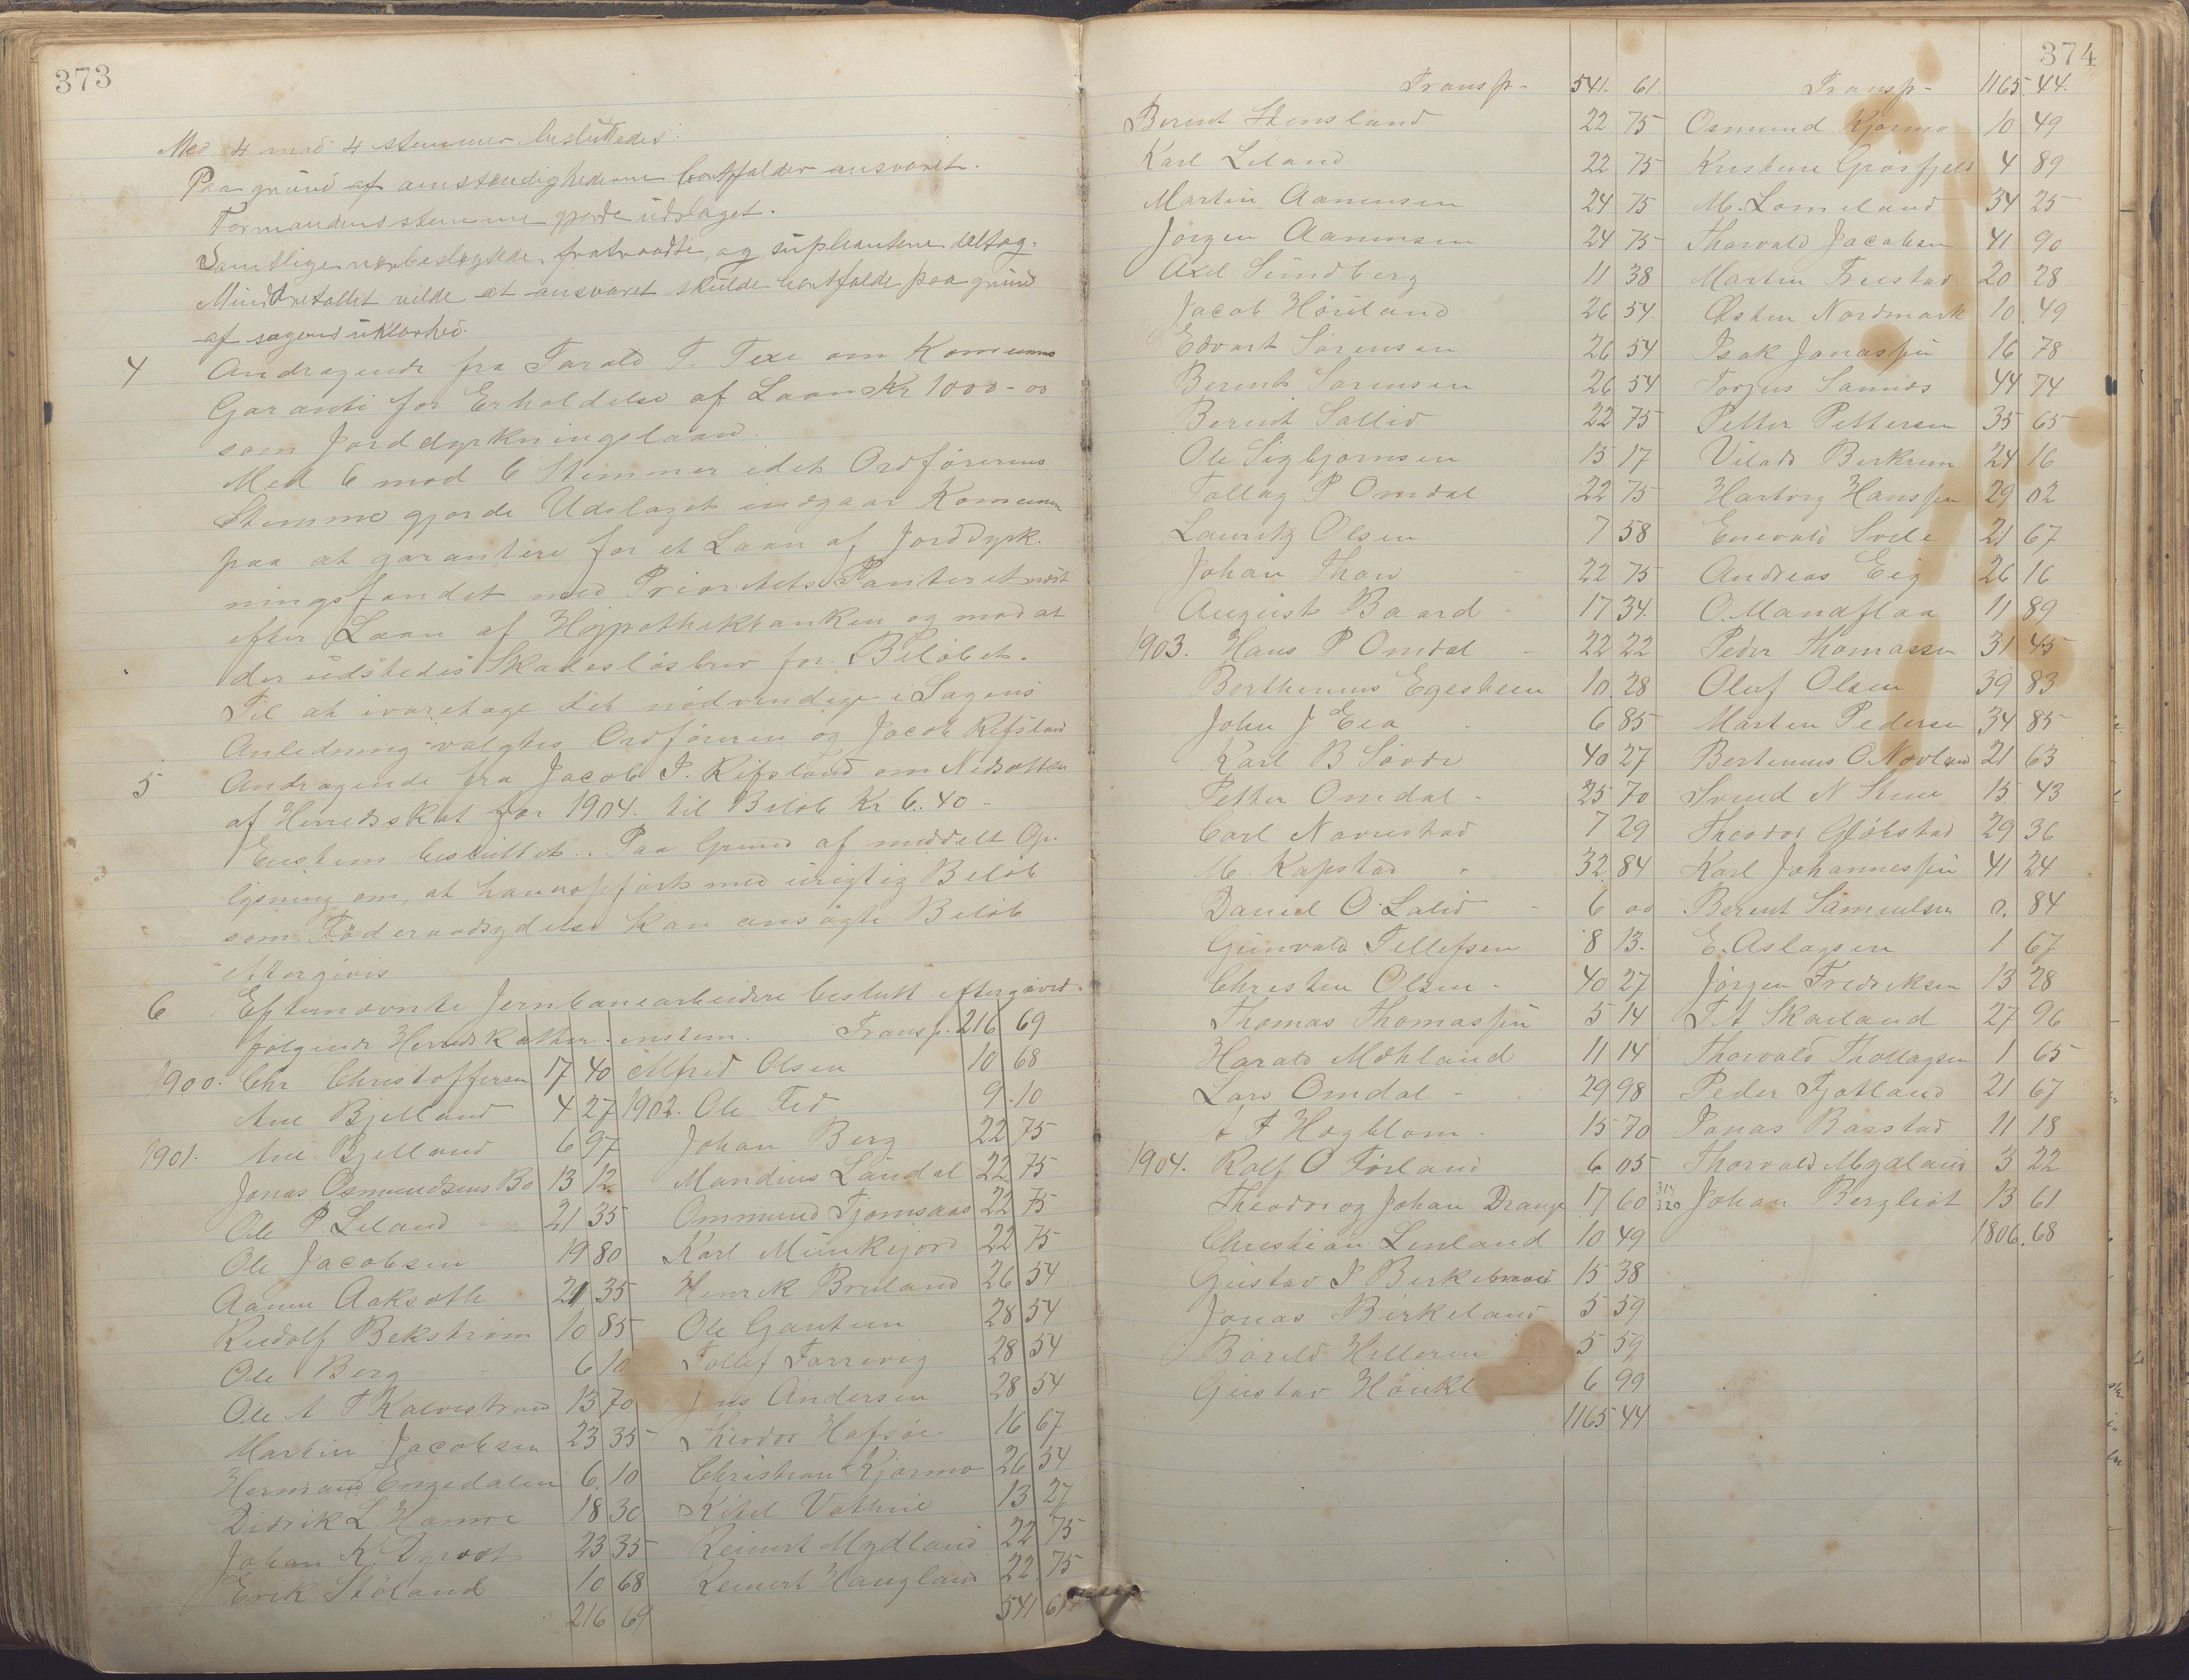 373
Med 4 mod 4 stemmer besluttedes:
Paa grund af omstændighederne bortfalder ansvaret.
Formandens stemme gjorde udslaget.
Samtlige nærbeslægtede fratraadte, og supleantene deltog.
Mindretallet vilde at ansvaret skulde bortfalde paa grund
af sagens uklarhed.
4 Andragende fra Tarald T. Texe om Kommunens
Garanti for Erholdelse af Laan Kr 1000-00
som Jorddyrkningslaan.
Med 6 mod 6 Stemmer idet Ordförerens
Stemme gjorde Udslaget indgaar Kommunen
paa at garantere for et Laan af Jorddyrk-
ningsfondet med Prioritets Panteret næst
efter Laan af Hypothekbanken og mod at
der udstedes Skadeslösbrev for Belöbet.
Til at ivaretage det nödvendige i Sagens
Anledning valgtes Ordföreren og Jacob Refsland
5 Andragende fra Jacob P. Refsland om Nedsættelse
af Herredsskat for 1904. til Belöb Kr 6.40-
Enstem besluttet.. Paa Grund af meddelt Op-
lysning om, at han er opfört med urigtig Belöb
som Föderaadsydelse kan ansögte Belöb
eftergives
6 Efternævnte Jernbanearbeidere beslutt eftergivet
følgende Herredskatter. enstem. Transp. 216 69
1900. Chr Christoffersen 17 40 Alfred Olsen 10 68
Ane Bjelland 4 27 1902. Ole Fed 9.10
1901. Ane Bjelland 6 97 Johan Berg 22 75
Jonas Osmundsens Bo 13 12 Mandius Landal 22 75
Ole P. Leland 21 35 Ommund Tjomsaas 22 75
Ole Jacobsen 19 80 Karl Munkejord 22 75
Aanen Aaksoth 21 35 Henrik Breiland 26 54
Rudolf Bekström 10 85 Ole Gautun 28 54
Ole Berg 6 10 Tollef Farrevig 28 54
Ole A T Kalvestrand 13 70 Jens Andersen 28 54
Martin Jacobsen 23 35 Theodor Hafsöe 16 67
Hermand Engedalen 6 10 Christian Kjørmo 26 54
Didrik L. Hamre 18 30 Ketil Vathne 13 27
Johan K Dyrødt 23 35 Reinert Mydland 22 75
Erik Stöland 10 68 Reinert Haugland 22 75
216 69 541 61
374
Transp- 541. 61. Transp- 1165.44.
Berent Stensland 22 75 Osmund Kjørmo 10 49
Karl Leland 22 75 Kristine Grösfjeld 4 89
Martin Aanensen 24 75 M. Lomeland 34 25
Jörgen Aanensen 24 75 Thorvald Jacobsen 41 90
Axel Sundberg 11 38 Martin Frestad 20 28
Jacob Höiland 26 54. Østen Nordmark 10.49
Edvart Sörensen 26 54 Isak Jonassen 16 78
Berent Sørensen 26 54 Torjus Sannes 44 74
Berent Sallid 22 75 Petter Pettersen 35 65
Ole Sigbjørnsen 15 17 Vilads Birkrem 24 16
Tallag P Omdal 22 75 Hartvig Hanssen 29 02
Lauritz Olsen 7 58 Enevald Svele 21 67
Johan Thaw 22 75 Andreas Eig 26 16
August Baard 17 34. O. Manaflaa 11 89
1903. Hans P Omdal 22 22 Peder Thomassen 31 45
Berthinius Egesheim 10 28 Oluf Olsen 39 83
John J Eea 6 85 Martin Pedersen 34 85
Karl B Sövde 40 27 Bertinius O Novland 21 63
Petter Omdal 25 70 Svend N Stene 15 43
Carl Navrestad 7 29 Theodor Glöbstad 29 36
M. Kapstad 32 84 Karl Johannessen 41 24
Daniel O. Lalid 6 00 Berent Samuelsen 0. 84
Gunvald Tellefsen 8 13. E. Aslagsen 1 67
Christen Olsen 40 27 Jörgen Fredriksen 13 28
Thomas Thomassen 5 14 T A Skailand 27 96
Harald Mæhland 11 14 Thorvald Thollagsen 1 65
Lars Omdal 29 98 Peder Fjotland 21 67
A F Hogblom 15 70 Jonas Baastad 11 18
1904. Rolf O Förland 6 05 Thorvald Mydland 3 22
Theodor og Johan Drange 17 60 314 320 Johan Bergliot 13 61
Christian Lenland 10 49 1806.68
Gustav P Birkeland 15 38
Jonas Birkeland 5 59
Bärild Helleren 5 59
Gustav 6 99
1165 44